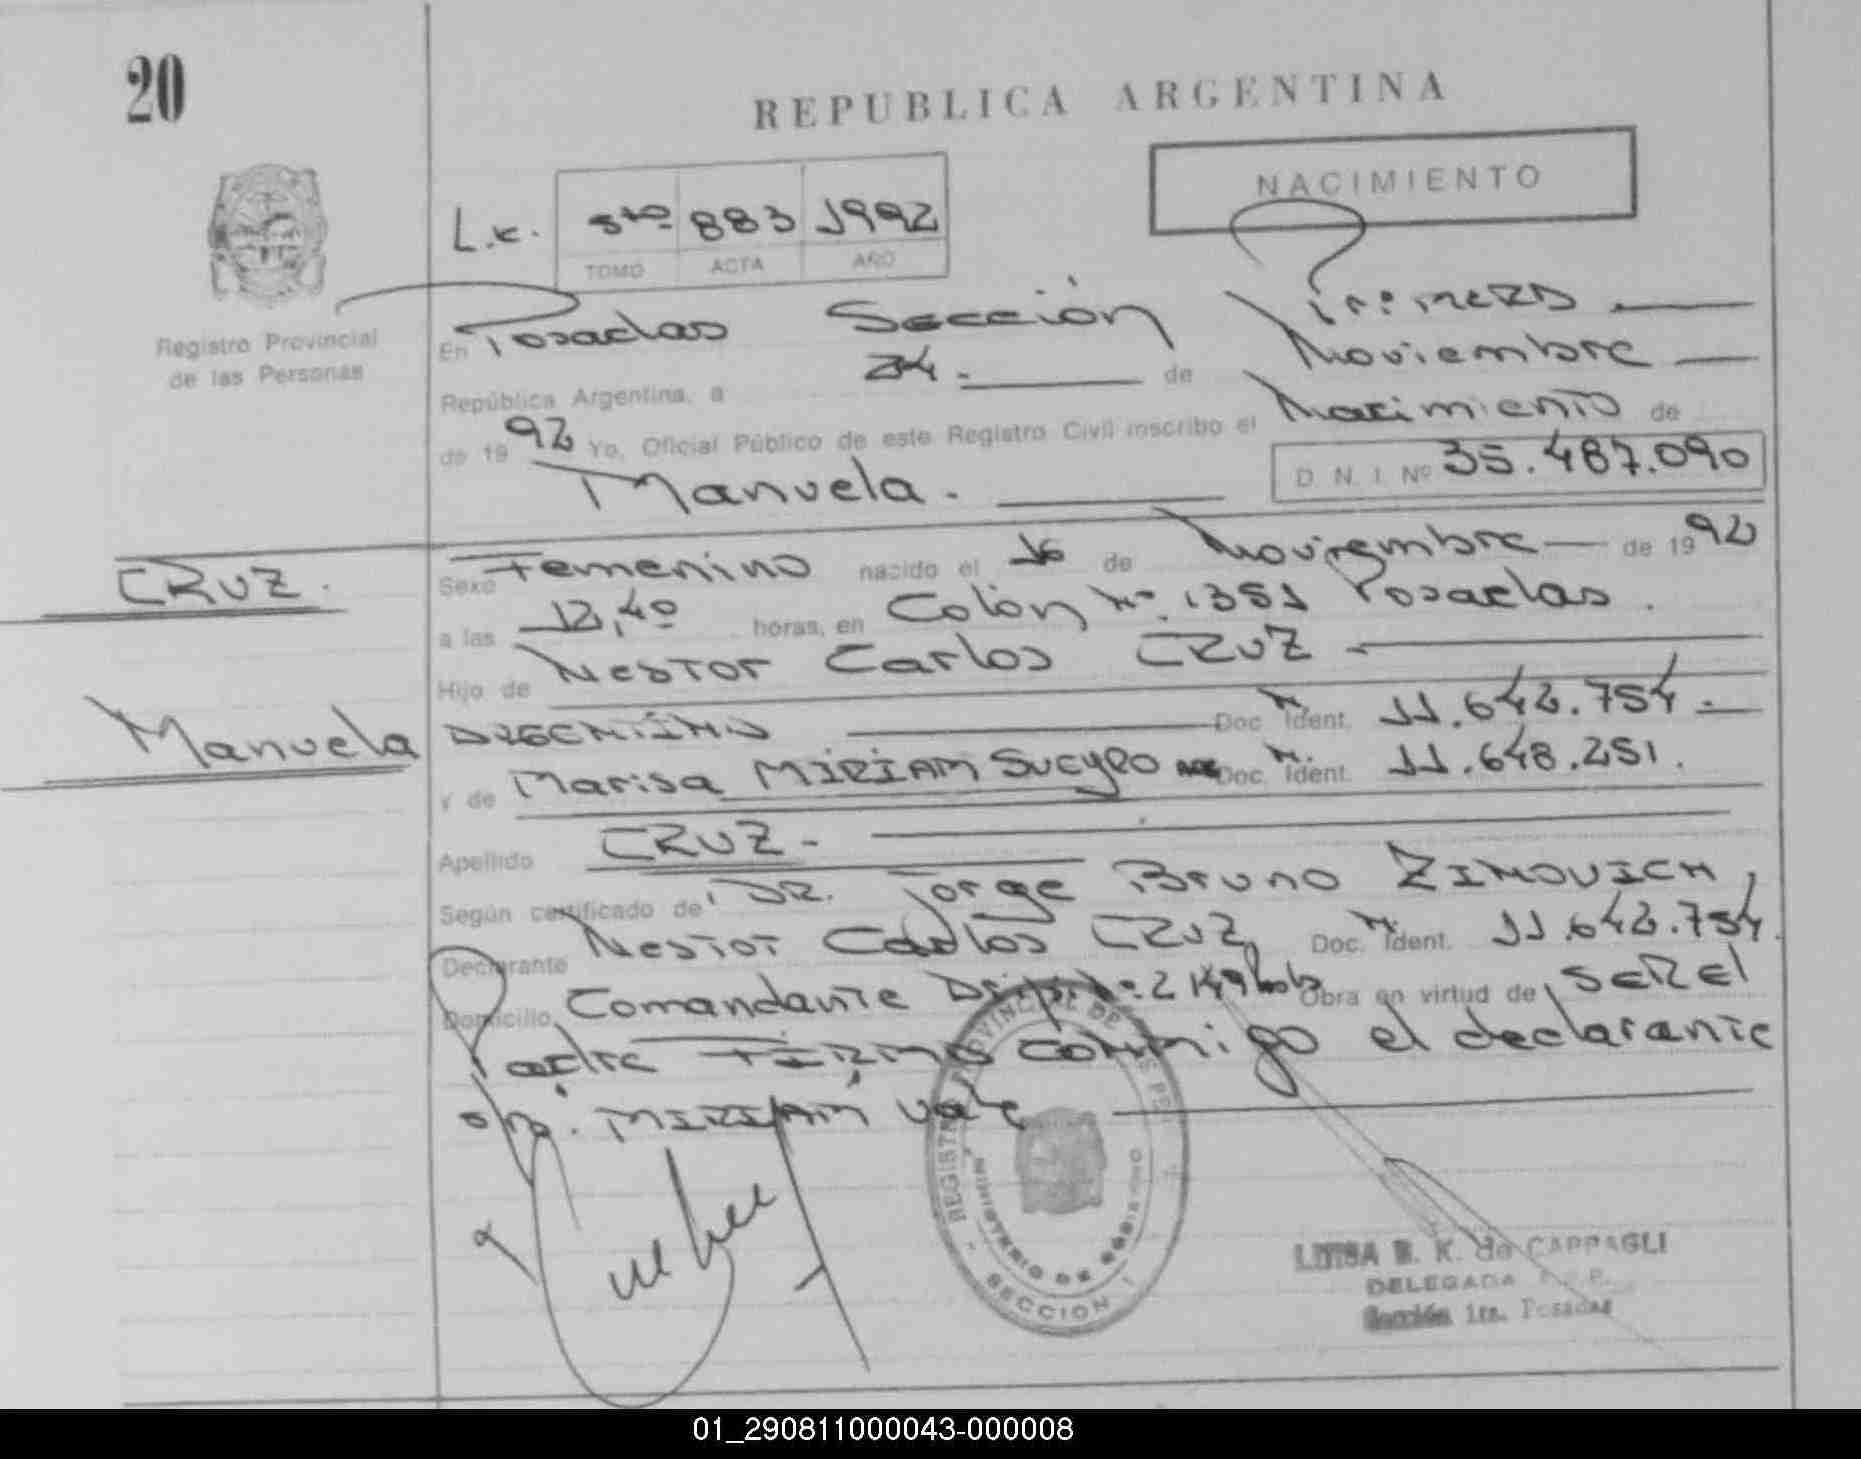 20
REPUBLICA ARGENTINA
NACIMIENTO
L.c. 5to 883 1992
TOMO ACTA AÑO
Registro Provincial
de las Personas
En Posadas Sección Primera
República Argentina, a 24. de Noviembre
de 1992 Yo, Oficial Público de este Registro Civil inscribo el Nacimiento de
Manuela. D. N. I. Nº 35.487.090
CRUZ.
Manuela
Sexo Femenino nacido el 16 de Noviembre de 1992
a las 12,40 horas, en Colón Nº 1351 Posadas.
Hijo de Nestor Carlos CRUZ
ARGENTINO Doc. N. Ident. 11.642.754.
y de Marisa MIRIAM SUCYRO Doc. N. Ident. 11.648.251.
Apellido CRUZ.
Según certificado de DR. Jorge Bruno ZIMOVICH,
Declarante Nestor Carlos CRUZ Doc. N. Ident. 11.642.754.
Domicilio Comandante Obra en virtud de SER el
Padre FIRMA conmigo el declarante
MIRIAM vale
REGISTRO PROVINCIAL DE LAS PERSONAS
MINISTERIO DE GOBIERNO
SECCION 1
LUISA E. K. de CAPPAGLI
DELEGADA
Sección 1ra. Posadas
01_290811000043-000008